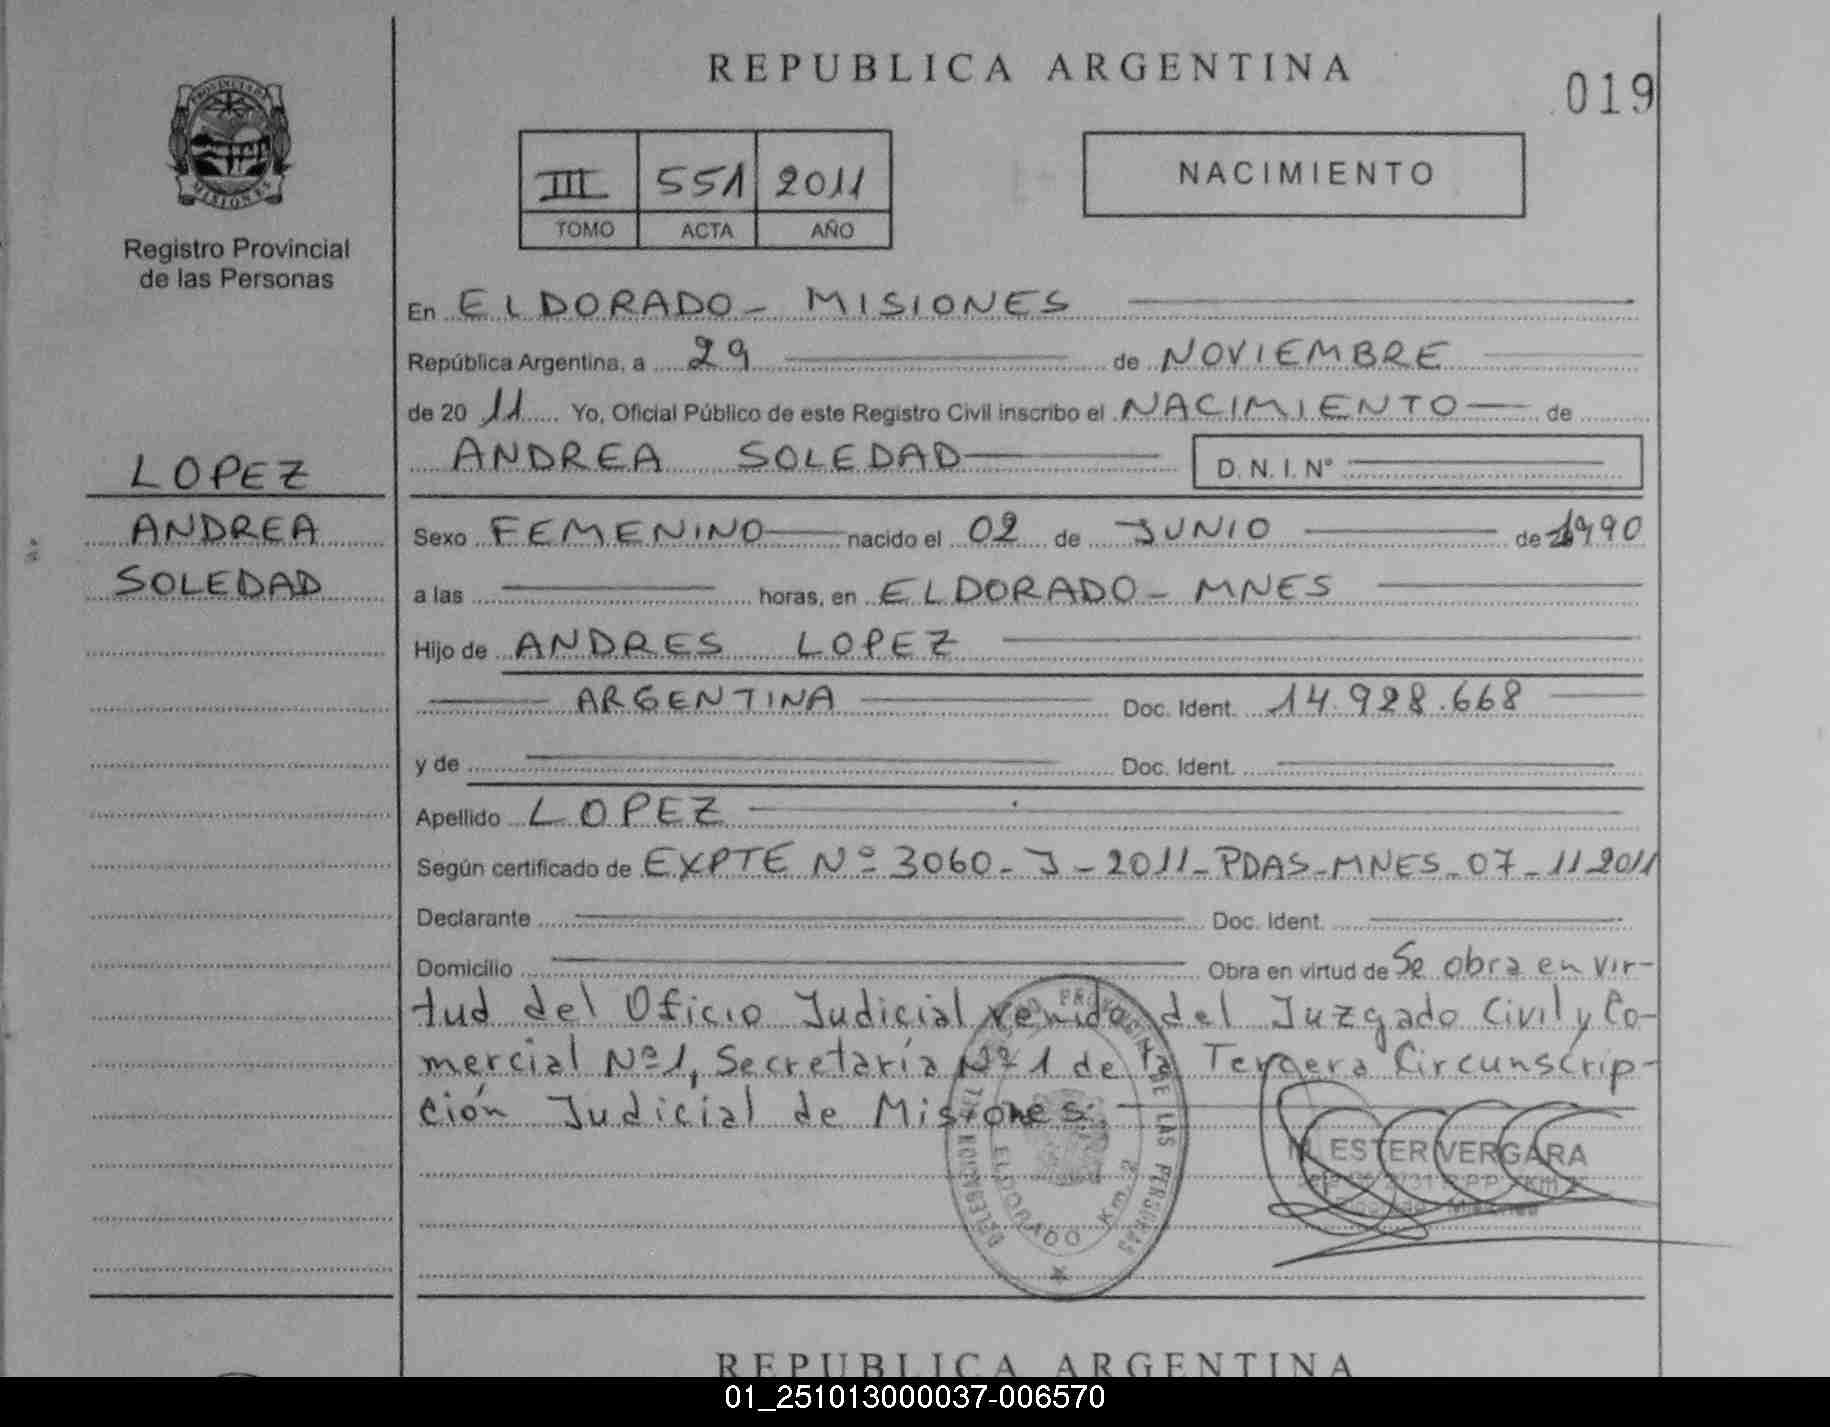 REPUBLICA ARGENTINA
019
PROVINCIA DE MISIONES
Registro Provincial
de las Personas
III 551 2011
TOMO ACTA AÑO
NACIMIENTO
En ELDORADO - MISIONES
República Argentina, a 29 de NOVIEMBRE
de 20 11 Yo, Oficial Público de este Registro Civil inscribo el NACIMIENTO de
ANDREA SOLEDAD D. N. I. Nº
LOPEZ
ANDREA
SOLEDAD
Sexo FEMENINO nacido el 02 de JUNIO de 1990
a las horas, en ELDORADO - MNES
Hijo de ANDRES LOPEZ
ARGENTINA Doc. Ident. 14.928.668
y de Doc. Ident.
Apellido LOPEZ
Según certificado de EXPTE Nº 3060 - J - 2011 - PDAS - MNES - 07 - 11 2011
Declarante Doc. Ident.
Domicilio Obra en virtud de Se obra en vir-
tud del Oficio Judicial venido del Juzgado Civil y Co-
mercial Nº 1, Secretaría Nº 1 de la Tercera Circunscrip-
ción Judicial de Misiones.
PROVINCIAL DE LAS PERSONAS
DELEGACION
ELDORADO Km. 2
M. ESTER VERGARA
REPUBLICA ARGENTINA
01_251013000037-006570